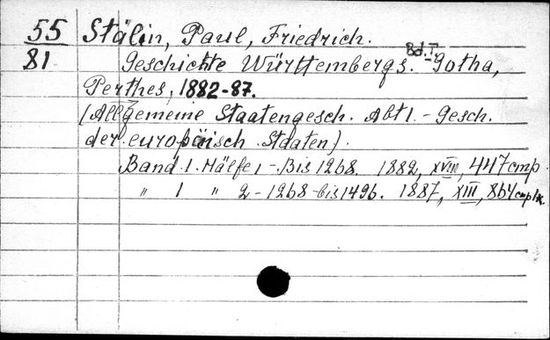 55 Stälin, Paul, Friedrich.
81 Geschichte Württembergs. Bd. I. Gotha,
Perthes, 1882-87.
(Allgemeine Staatengesch. Abt 1. - Gesch.
der europäisch. Staaten).
Band 1. Hälfe 1 - Bis 1268. 1882, XVIII, 447 cmp.
" 1 " 2 - 1268 - bis 1496. 1887, XIII, 864